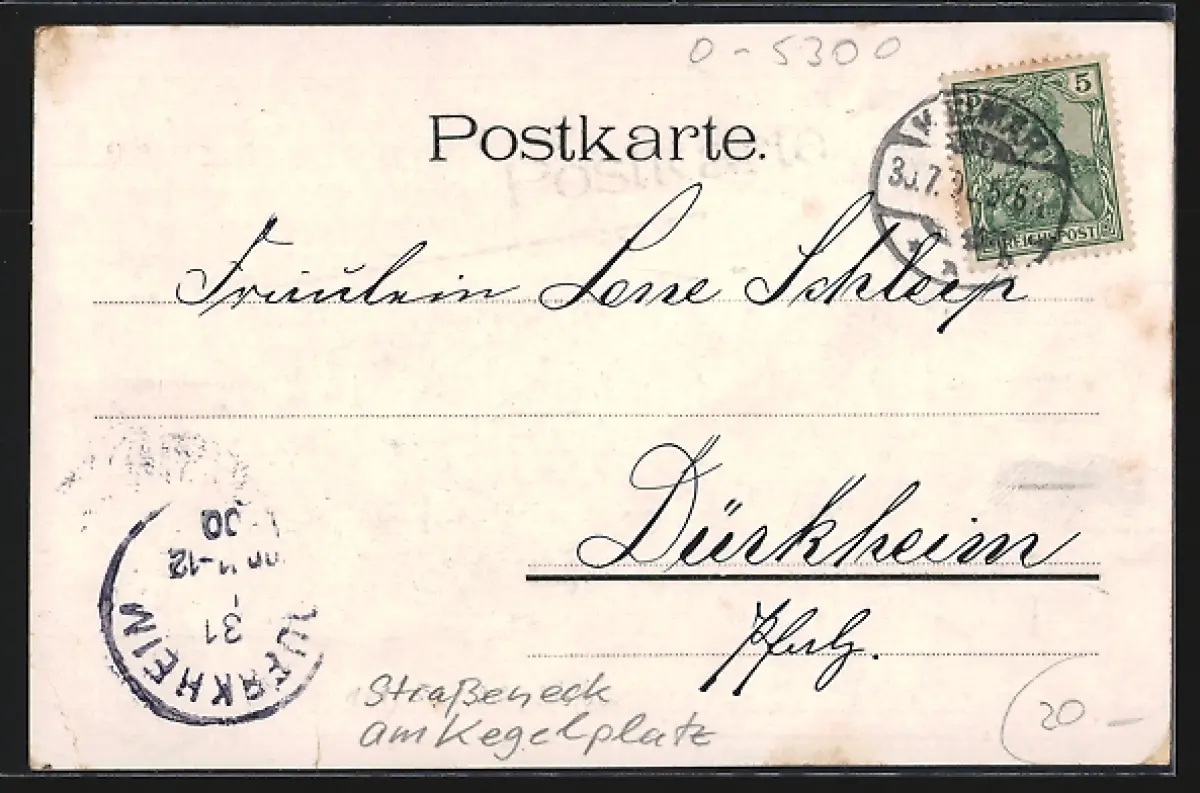 0-5300
Postkarte.
5
REICHSPOST
30.7.
5-6N.
Fräulein Lene Schleip
Dürkheim
Pfalz.
31
DUERKHEIM
11-12
00
Straßeneck
am Kegelplatz
20 -